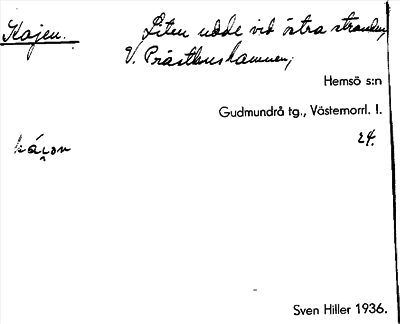 Kajen.
Liten udde vid östra stranden,
V. Prästhushamnen;
Hemsö s:n
Gudmundrå tg., Västernorrl. l.
24.
Sven Hiller 1936.